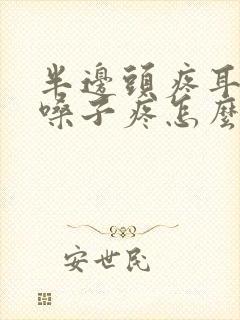 半邊頭疼耳
嗓子疼怎麼
安世民